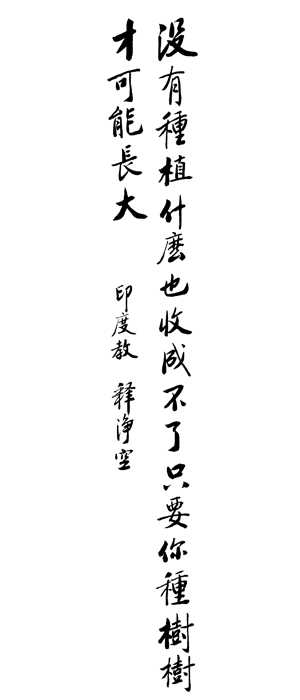 没有種植什麼也收成不了只要你種樹樹
才可能長大
印度教 释淨空